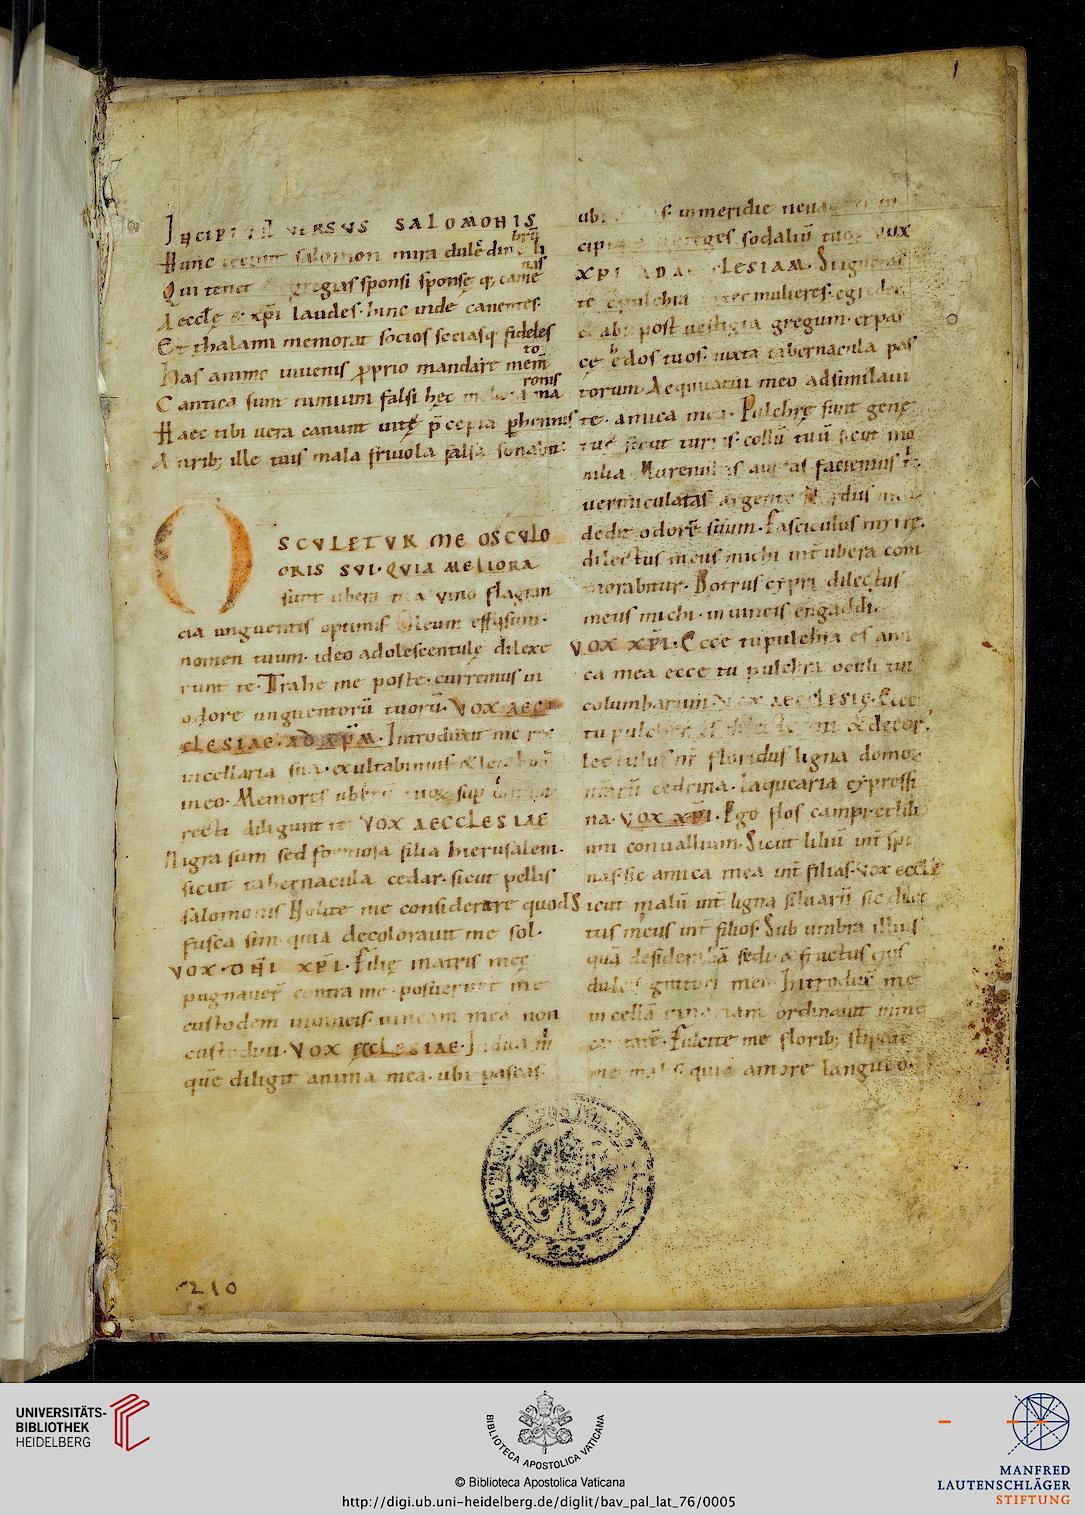 1
INCIPIT VERSVS SALOMONIS
Hunc cecinit salomon mira dulcedin libru
Qui tenet egregias sponsi sponsę q; camenas
Aecclę & xp̄i laudes· hinc inde canentes·
Et thalami memorat socios sociasq; fideles
Has animo iuvenis proprio mandare memto
Cantica sunt nimium falsi hęc meliora ma ronis
Haec tibi vera canunt vitę p̄cepta p̱hennis
Aurib; ille tuis mala frivola falsa sonabit·
OSCVLETVR ME OSCVLO
ORIS SVI· QVIA MELIORA
sunt ubera tua vino flagran
cia unguentis optimis Oleum effusum·
nomen tuum· ideo adolescentulę dilexe
runt te· Trahe me poste· curremus in
odore unguentorū tuorū· VOX AEC
CLESIAE· AD XP̄M· Introduxit me rex
in cellaria sua· exultabimus &
in eo· Memores sup
recti diligunt te VOX AECCLESIAE
Nigra sum sed formosa filia hierusalem·
sicut tabernacula cedar· sicut pellis
salomonis Nolite me considerare quod
fusca sim quia decoloravit me sol·
VOX· DN̄I XP̄I· Filię matris meę
pugnaver̄ contra me· posuerunt me
custodem in vineis· vineam meā non
custodivi· VOX ECCLESIAE· Indica m̄
quē diligit anima mea· ubi pascas·
ubi in meridie ne vagari in
cipi greges sodaliū tuo VOX
XPI AD AECCLESIAM· Si ignoras
te o pulchra inter mulieres· egredere
& abi post vestigia gregum· et pas
cę hędos tuos· iuxta tabernacula pas
torum· Aequitatui meo adsimilavi
te· amica mea· Pulchrę sunt genę
tuę sicut turtu s· collū tuū sicut mo
nilia Murenulas aureas faciemus t̄·
vermiculatas argento Nardus
dedit odorē suum· Fasciculus myrrę·
dilectus meus michi int̄ ubera com
morabitur· Botrus cypri dilectus
meus michi· in vineis engaddi·
VOX XP̄I· Ecce tu pulchra es ami
ca mea ecce tu pulchra oculi tui
columbarum· VOX AECCLESIĘ· Ecce
tu pulcher es & decor
lectulus nr̄ floridus ligna domoꝝ
cedrina· laquearia cypressi
na· VOX XP̄I· Ego flos campi· et lili
um convallium· Sicut liliū int̄ spi
nas· sic amica mea int̄ filias· Vox ecclę
Sicut malū int̄ ligna silvarū sic dilec
tus meus int̄ filios· Sub umbra illius
quā desiderabā sedi· & fructus eius
dulcis gutturi meo Introdux̄ me
in cellā vinariam ordinavit in me
caritatē· Fulcite me florib; stipate
me malis quia amore langueo·
210
UNIVERSITÄTS-
BIBLIOTHEK
HEIDELBERG
BIBLIOTECA APOSTOLICA VATICANA
© Biblioteca Apostolica Vaticana
http://digi.ub.uni-heidelberg.de/diglit/bav_pal_lat_76/0005
MANFRED
LAUTENSCHLÄGER
STIFTUNG